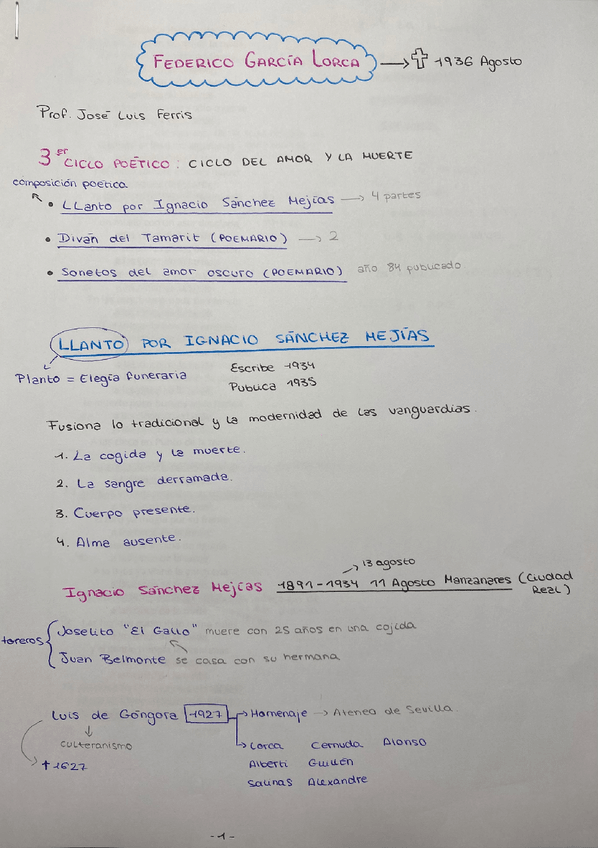 FEDERICO GARCÍA LORCA → ✝ 1936 Agosto
Prof. José Luis Ferris
3er CICLO POÉTICO: CICLO DEL AMOR Y LA MUERTE
composición poética
• LLanto por Ignacio Sánchez Mejías → 4 partes
• Diván del Tamarit (POEMARIO) → 2
• Sonetos del amor oscuro (POEMARIO) año 84 publicado
LLANTO POR IGNACIO SÁNCHEZ MEJÍAS
Planto = Elegía funeraria
Escribe 1934
Publica 1935
Fusiona lo tradicional y la modernidad de las vanguardias.
1. La cogida y la muerte.
2. La sangre derramada.
3. Cuerpo presente.
4. Alma ausente.
13 agosto
Ignacio Sánchez Mejías 1891-1934 11 Agosto Manzanares (Ciudad
Real)
toreros
Joselito "El Gallo" muere con 25 años en una cojida
Juan Belmonte se casa con su hermana
Luis de Góngora 1927 → Homenaje → Ateneo de Sevilla.
culteranismo
✝ 1627
Lorca Cernuda Alonso
Alberti Guillén
Salinas Alexandre
-1-